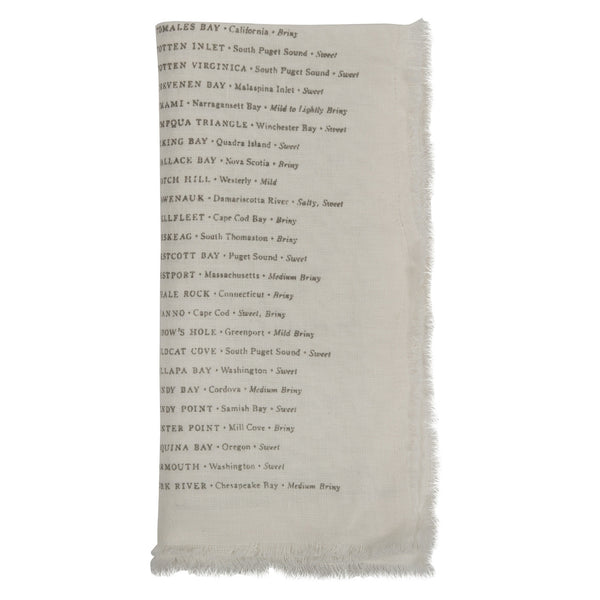 TOMALES BAY • California • Briny
OTTEN INLET • South Puget Sound • Sweet
OTTEN VIRGINICA • South Puget Sound • Sweet
EVENEN BAY • Malaspina Inlet • Sweet
MAMI • Narragansett Bay • Mild to Lightly Briny
MPQUA TRIANGLE • Winchester Bay • Sweet
KING BAY • Quadra Island • Sweet
ALLACE BAY • Nova Scotia • Briny
TCH HILL • Westerly • Mild
AWENAUK • Damariscotta River • Salty, Sweet
LLFLEET • Cape Cod Bay • Briny
SKEAG • South Thomaston • Briny
STCOTT BAY • Puget Sound • Sweet
STPORT • Massachusetts • Medium Briny
ALE ROCK • Connecticut • Briny
ANNO • Cape Cod • Sweet, Briny
DOW'S HOLE • Greenport • Mild Briny
LDCAT COVE • South Puget Sound • Sweet
LLAPA BAY • Washington • Sweet
NDY BAY • Cordova • Medium Briny
NDY POINT • Samish Bay • Sweet
NTER POINT • Mill Cove • Briny
QUINA BAY • Oregon • Sweet
RMOUTH • Washington • Sweet
RK RIVER • Chesapeake Bay • Medium Briny